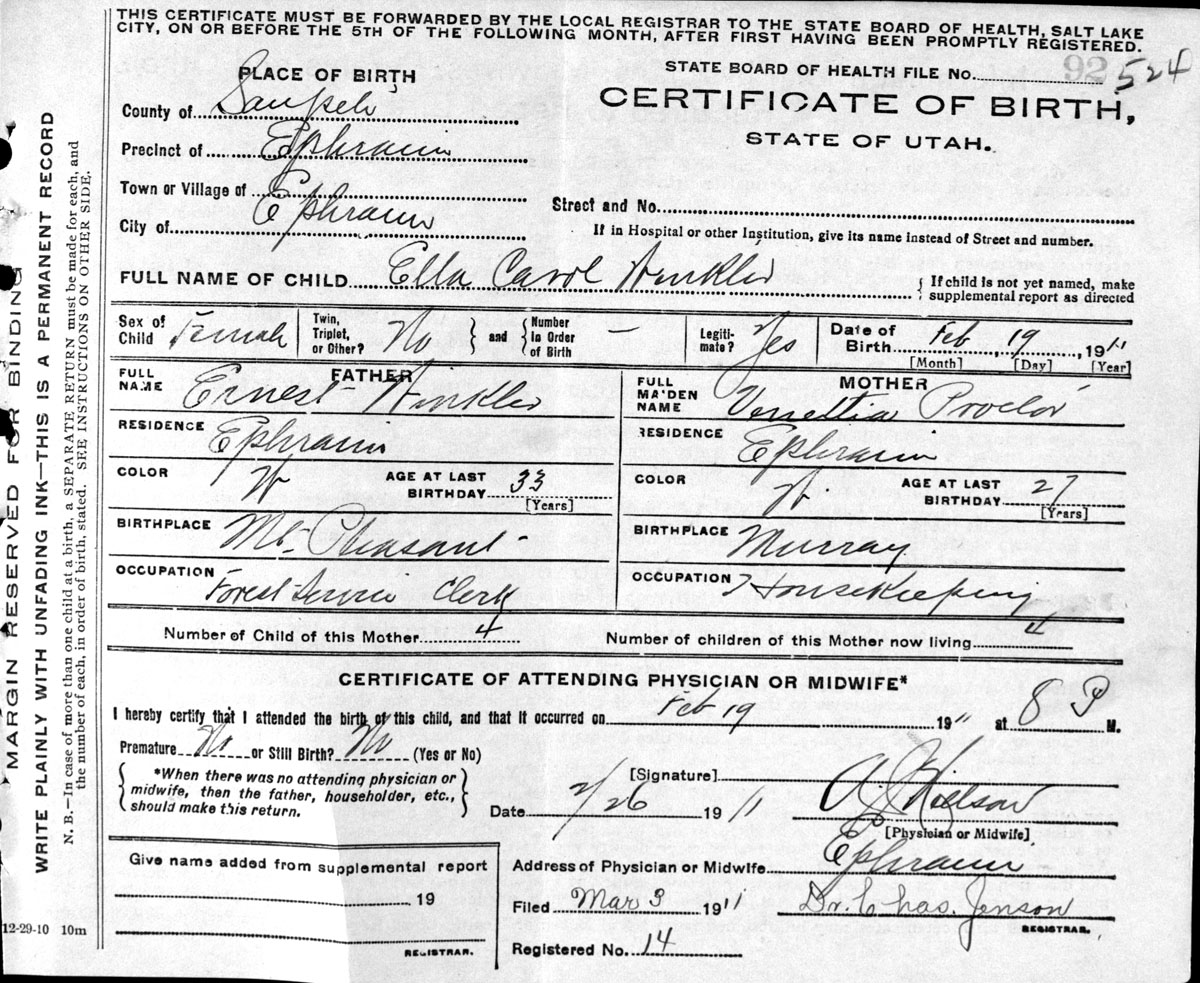 THIS CERTIFICATE MUST BE FORWARDED BY THE LOCAL REGISTRAR TO THE STATE BOARD OF HEALTH, SALT LAKE
CITY, ON OR BEFORE THE 5TH OF THE FOLLOWING MONTH, AFTER FIRST HAVING BEEN PROMPTLY REGISTERED.
PLACE OF BIRTH
STATE BOARD OF HEALTH FILE No. 92 524
County of Sanpete
CERTIFICATE OF BIRTH,
STATE OF UTAH.
Precinct of Ephraim
Town or Village of
Street and No.
City of Ephraim
If in Hospital or other Institution, give its name instead of Street and number.
FULL NAME OF CHILD Ella Carol Winkler
{ If child is not yet named, make
supplemental report as directed
Sex of Child Female Twin, Triplet, or Other? No } and { Number in Order of Birth — Legiti-mate? Yes Date of Birth Feb 19, 1911
[Month] [Day] [Year]
FATHER
FULL NAME Ernest Winkler
MOTHER
FULL MAIDEN NAME Venettia Proctor
RESIDENCE Ephraim
RESIDENCE Ephraim
COLOR W AGE AT LAST BIRTHDAY 33 [Years]
COLOR W. AGE AT LAST BIRTHDAY 27 [Years]
BIRTHPLACE Mt Pleasant
BIRTHPLACE Murray
OCCUPATION Forest Service Clerk
OCCUPATION Housekeeping
Number of Child of this Mother 4 Number of children of this Mother now living 4
CERTIFICATE OF ATTENDING PHYSICIAN OR MIDWIFE*
I hereby certify that I attended the birth of this child, and that it occurred on Feb 19 1911 at 8 P M.
Premature No or Still Birth? No (Yes or No)
{ *When there was no attending physician or
midwife, then the father, householder, etc.,
should make this return. }
[Signature]
Date 2/26 1911
[Physician or Midwife]
Address of Physician or Midwife Ephraim
Give name added from supplemental report
19
REGISTRAR.
Filed Mar 3 1911 Dr. Chas. Jenson
REGISTRAR.
Registered No. 14
12-29-10 10m
MARGIN RESERVED FOR BINDING
WRITE PLAINLY WITH UNFADING INK—THIS IS A PERMANENT RECORD
N. B.—In case of more than one child at a birth, a SEPARATE RETURN must be made for each, and
the number of each, in order of birth, stated. SEE INSTRUCTIONS ON OTHER SIDE.